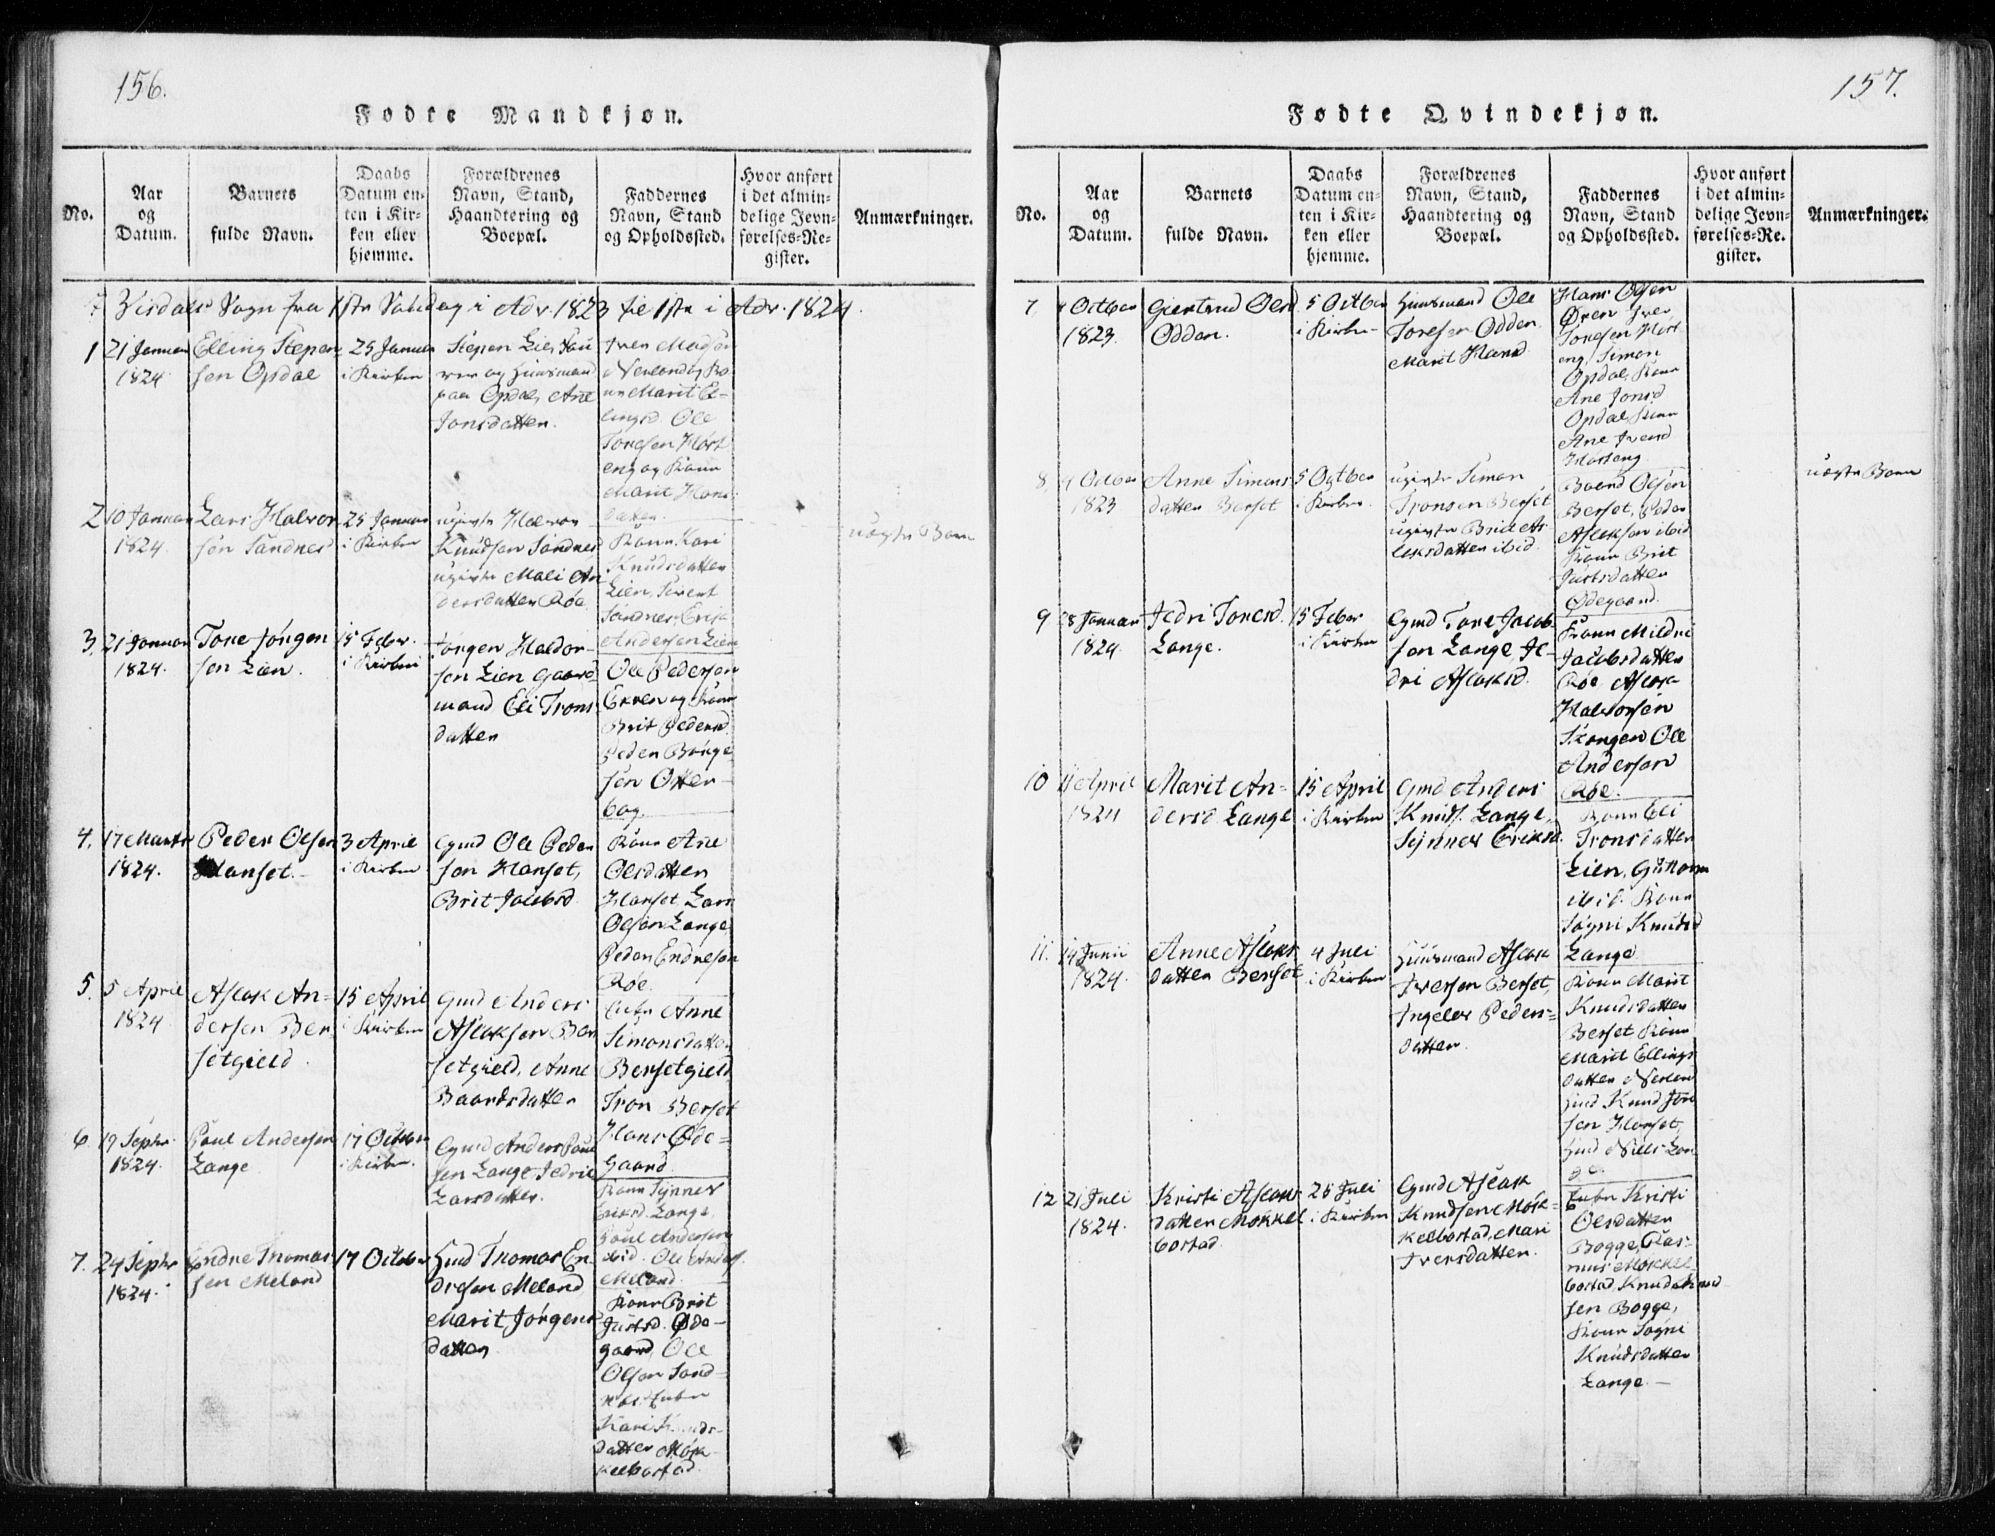 156.
Fødte Mandkjøn.
No.
Aar
og
Datum.
Barnets
fulde Navn.
Daabs
Datum en-
ten i Kir-
ken eller
hjemme.
Forældrenes
Navn, Stand,
Haandtering og
Boepæl.
Faddernes
Navn, Stand
og Opholdssted.
Hvor anført
i det almin-
delige Jevn-
førelses-Re-
gister.
Anmærkninger.
Visdals Sogn fra 1ste Søndag i Adv. 1823 til 1ste i Adv. 1824.
1
21 Januar
1824
Elling Stepen
sen Opdal
25 Januar
i Kirken
Stepen Lie,
og Huusmand
paa Opdal, Ane
Jonsdatter.
Iver Madsen
Marit El-
lingsd. Ole
Toresen Hørt
eng og Kone
Marit Hans-
datter.
2
10 Januar
1824.
Lars Halvor
sen Sandnes
25 Januar
i Kirken
ugivte Halvor
Knudsen Sandnes
ugivte Mali An
dersdatter Røe.
Kone Kari
Knudsdatter
Lien, Sivert
Sandnes, Erik
Andersen Lien
uægte Barn
3.
21 Januar
1824.
Tore Jørgen
sen Lien.
15 Febr.
i Kirken
Jørgen Haldor-
sen Lien Gaard-
mand Eli Trons
datter
Ole Pedersen
Ekren og Kone
Brit Pedersd
Peder Børge
sen Otter-
bog.
4.
17 Marts
1824.
Peder Olsen
Hanset.
3 April
i Kirken
Gmd Ole Peder
sen Hanset,
Brit Jacobsd.
Kone Ane
Olsdatter
Hanset, Lars
Olsen Lange,
Peder Endresen
Røe.
5.
5 April
1824.
Aslak An-
dersen Ber-
setgield.
15 April
i Kirken
Gmd Anders
Aslaksen Ber
setgield, Anne
Baardsdatter
Anne
Simonsdatter
Bersetgield,
Tron Berset
Hans Øde-
gaard.
6
19 Septr.
1824.
Poul Andersen
Lange
17 October
i Kirken.
Gmd Anders Poul
sen Lange, Jedri
Larsdatter.
Kone Synnev
Eriksd. Lange,
Poul Andersen
ibid. Ole Endres.
Meland.
7.
24 Septr
1824.
Endre Thomas
sen Meland
17 October
Hmd Thomas En
dresen Meland
Marit Jørgens
datter
Kone Brit
Justsd. Øde-
gaard, Ole
Olsen Sand-
nes. Enke
Kari Knuds-
datter Møk-
kelbostad.
157.
Fødte Qvindekjøn.
No.
Aar
og
Datum.
Barnets
fulde Navn.
Daabs
Datum en-
ten i Kir-
ken eller
hjemme.
Forældrenes
Navn, Stand,
Haandtering og
Boepæl.
Faddernes
Navn, Stand
og Opholdssted.
Hvor anført
i det almin-
delige Jevn-
førelses-Re-
gister.
Anmærkninger.
7.
4 Octber
1823.
Giertrud Olsd
Odden.
5 Octber
i Kirken
Huusmand Ole
Toresen Odden
Marit Hansd.
Hans Olsen
Øren Iver
Toresen Hørt
eng, Simon
Opdal, Kone
Ane Jonsd
Opdal, Kone
Ane Iversd
Hørteng.
8.
4 Octber
1823
Anne Simons
datter Berset
5 Octber
i Kirken.
ugivte Simon
Tronsen Berset
ugivte Brit As-
laksdatter ibid.
Baard Olsen
Berset, Peder
Aslaksen ibid
Kone Brit
Justsdatter
Ødegaard.
uægte Barn
9
28 Januar
1824.
Jedri Toresd.
Lange.
15 Febr
i Kirken
Gmd Tore Jacob
sen Lange, Je-
dri Aslaksd.
Kone Mildri
Jacobsdatter
Røe, Aslak
Halvorsen
Ole
Andersen
Røe.
10
11 April
1824
Marit An-
dersd Lange
15 April
i Kirken
Gmd Anders
Knuds. Lange,
Synnev Eriksd.
Kone Eli
Tronsdatter
Lien, Guttorm
ibid. Kone
Søgni Knudsd
Lange
11.
14 Junii
1824.
Anne Aslaks
datter Berset
4 Juli
i Kirken
Huusmand Aslak
Iversen Berset,
Ingelev Peders-
datter.
Kone Marit
Knudsdatter
Berset Kone
Marit Ellings
datter Nerland
Hmd Knud Jon
sen Hanset,
Hmd Niels Lan
ge.
12
21 Juli
1824.
Kristi Aslaks
datter Møkkel
bostad.
25 Juli
i Kirken
Gmd Aslak
Knudsen Møk-
kelbostad, Mari
Iversdatter.
Enke Kristi
Olsdatter
Bogge, Ras-
mus Møkkel-
bostad, Knud Knud
sen Bogge,
Kone Søgni
Knudsdatter
Lange.